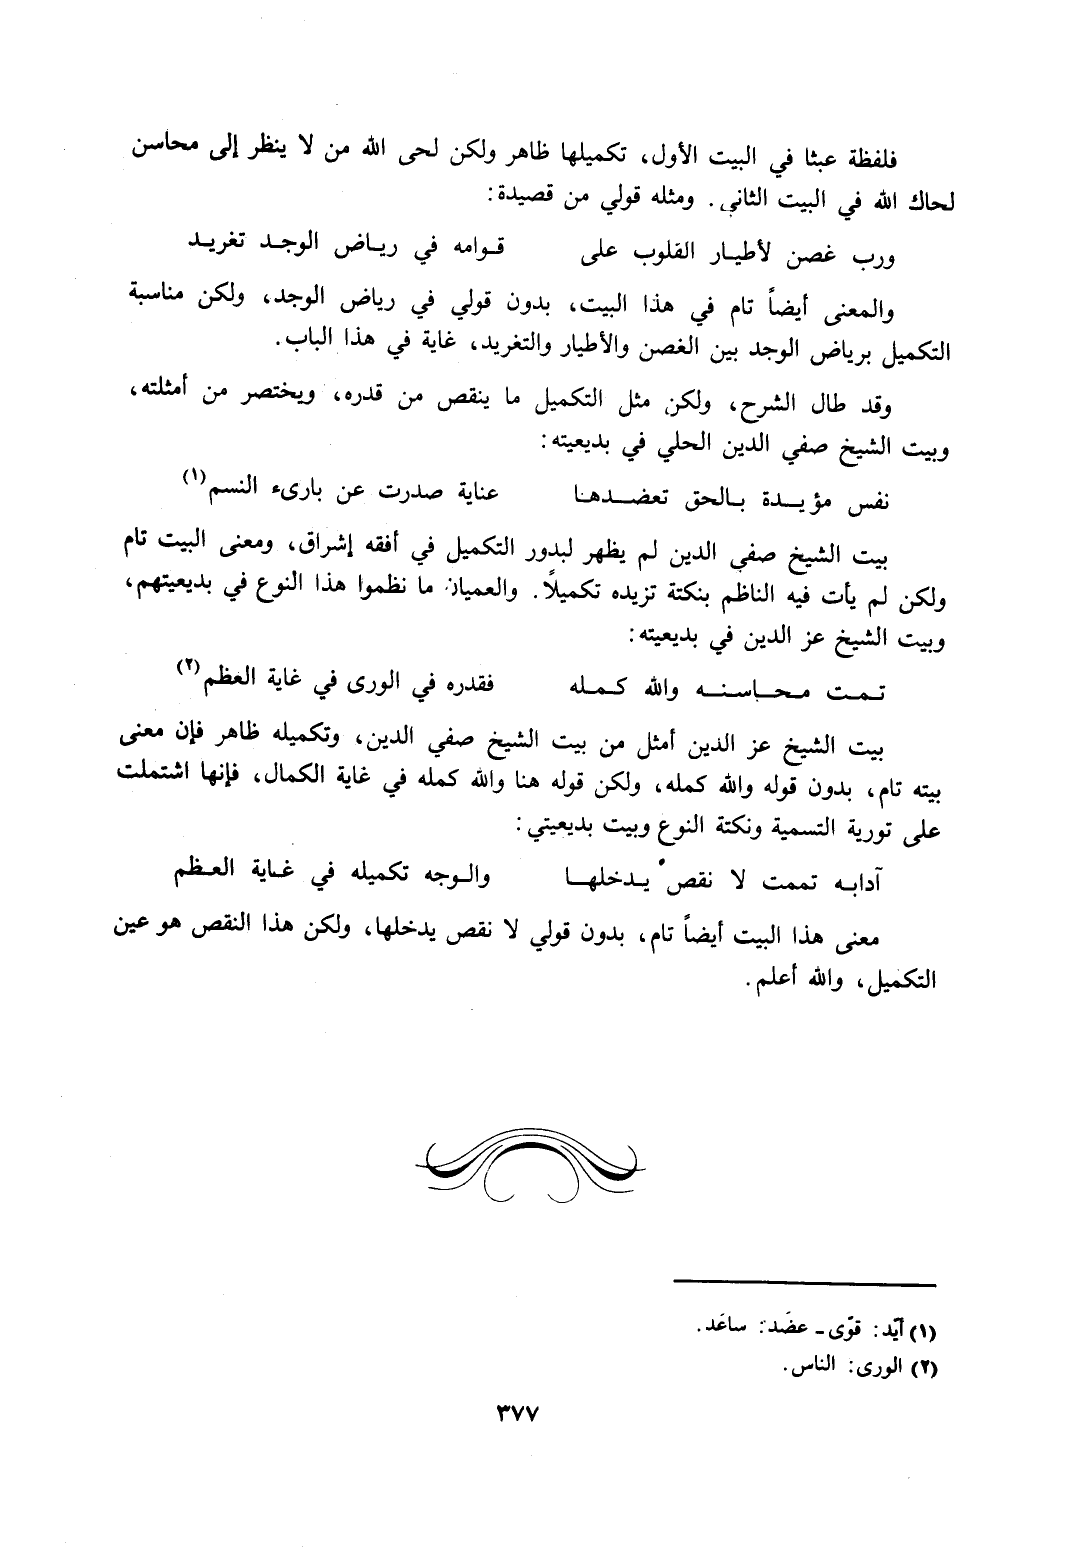 فلفظة عبثا في البيت الأول، تكميلها ظاهر ولكن لحى الله من لا ينظر إلى محاسن
لحاك الله في البيت الثاني. ومثله قولي من قصيدة:
ورب غصن لأطيـار القلوب على قـوامه في ريـاض الوجـد تغريـد
والمعنى أيضاً تام في هذا البيت، بدون قولي في رياض الوجد، ولكن مناسبة
التكميل برياض الوجد بين الغصن والأطيار والتغريد، غاية في هذا الباب.
وقد طال الشرح، ولكن مثل التكميل ما ينقص من قدره، ويختصر من أمثلته،
وبيت الشيخ صفي الدين الحلي في بديعيته:
نفس مؤيـدة بـالحق تعضـدهـا عناية صدرت عن بارىء النسم(١)
بيت الشيخ صفي الدين لم يظهر لبدور التكميل في أفقه إشراق، ومعنى البيت تام
ولكن لم يأت فيه الناظم بنكتة تزيده تكميلاً. والعميان ما نظموا هذا النوع في بديعيتهم،
وبيت الشيخ عز الدين في بديعيته:
تـمـت مـحـاسـنـه والله كـمـله فقدره في الورى في غاية العظم(٢)
بيت الشيخ عز الدين أمثل من بيت الشيخ صفي الدين، وتكميله ظاهر فإن معنى
بيته تام، بدون قوله والله كمله، ولكن قوله هنا والله كمله في غاية الكمال، فإنها اشتملت
على تورية التسمية ونكتة النوع وبيت بديعيتي:
آدابـه تممت لا نقص يـدخلهـا والـوجه تكميله في غـاية العـظم
معنى هذا البيت أيضاً تام، بدون قولي لا نقص يدخلها، ولكن هذا النقص هو عين
التكميل، والله أعلم.
(١) أيّد: قوّى ـ عضَد: ساعَد.
(٢) الورى: الناس.
٣٧٧